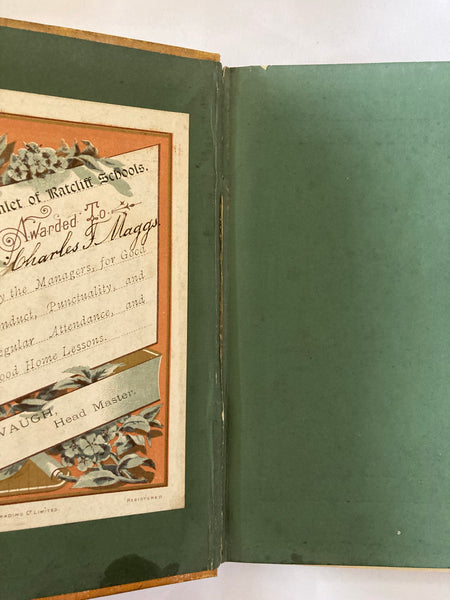 mlet of Ratcliff Schools.
Awarded To
Charles J Maggs.
by the Managers, for Good
nduct, Punctuality, and
egular Attendance, and
ood Home Lessons.
VAUGH,
Head Master.
RADING Co. LIMITED.
REGISTERED